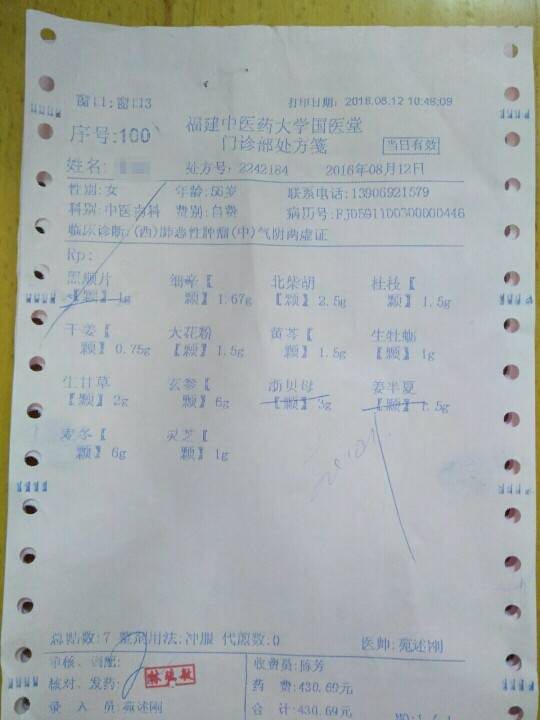 窗口:窗口3 打印日期: 2016.08.12 10:48:09
序号:100 福建中医药大学国医堂
门诊部处方笺 当日有效
姓名: 处方号: 2242184 2016年08月12日
性别:女 年龄:56岁 联系电话:13906921579
科别:中医内科 费别:自费 病历号:FJ0591100300000446
临床诊断:(西)肺恶性肿瘤(中)气阴两虚证
Rp:
黑顺片 细辛【 北柴胡 桂枝【
【颗】1g 颗】1.67g 【颗】2.5g 颗】1.5g
干姜【 天花粉 黄芩【 生牡蛎
颗】0.75g 【颗】1.5g 颗】1.5g 【颗】1g
生甘草 玄参【 浙贝母 姜半夏
【颗】2g 颗】6g 【颗】3g 【颗】1.5g
麦冬【 灵芝【
颗】6g 颗】1g
总贴数:7 用法:冲服 代煎数:0 医师:苑述刚
审核、调配: 收费员:陈芳
核对、发药: 药 费:430.69元
录 入 员:苑述刚 合 计:430.69元